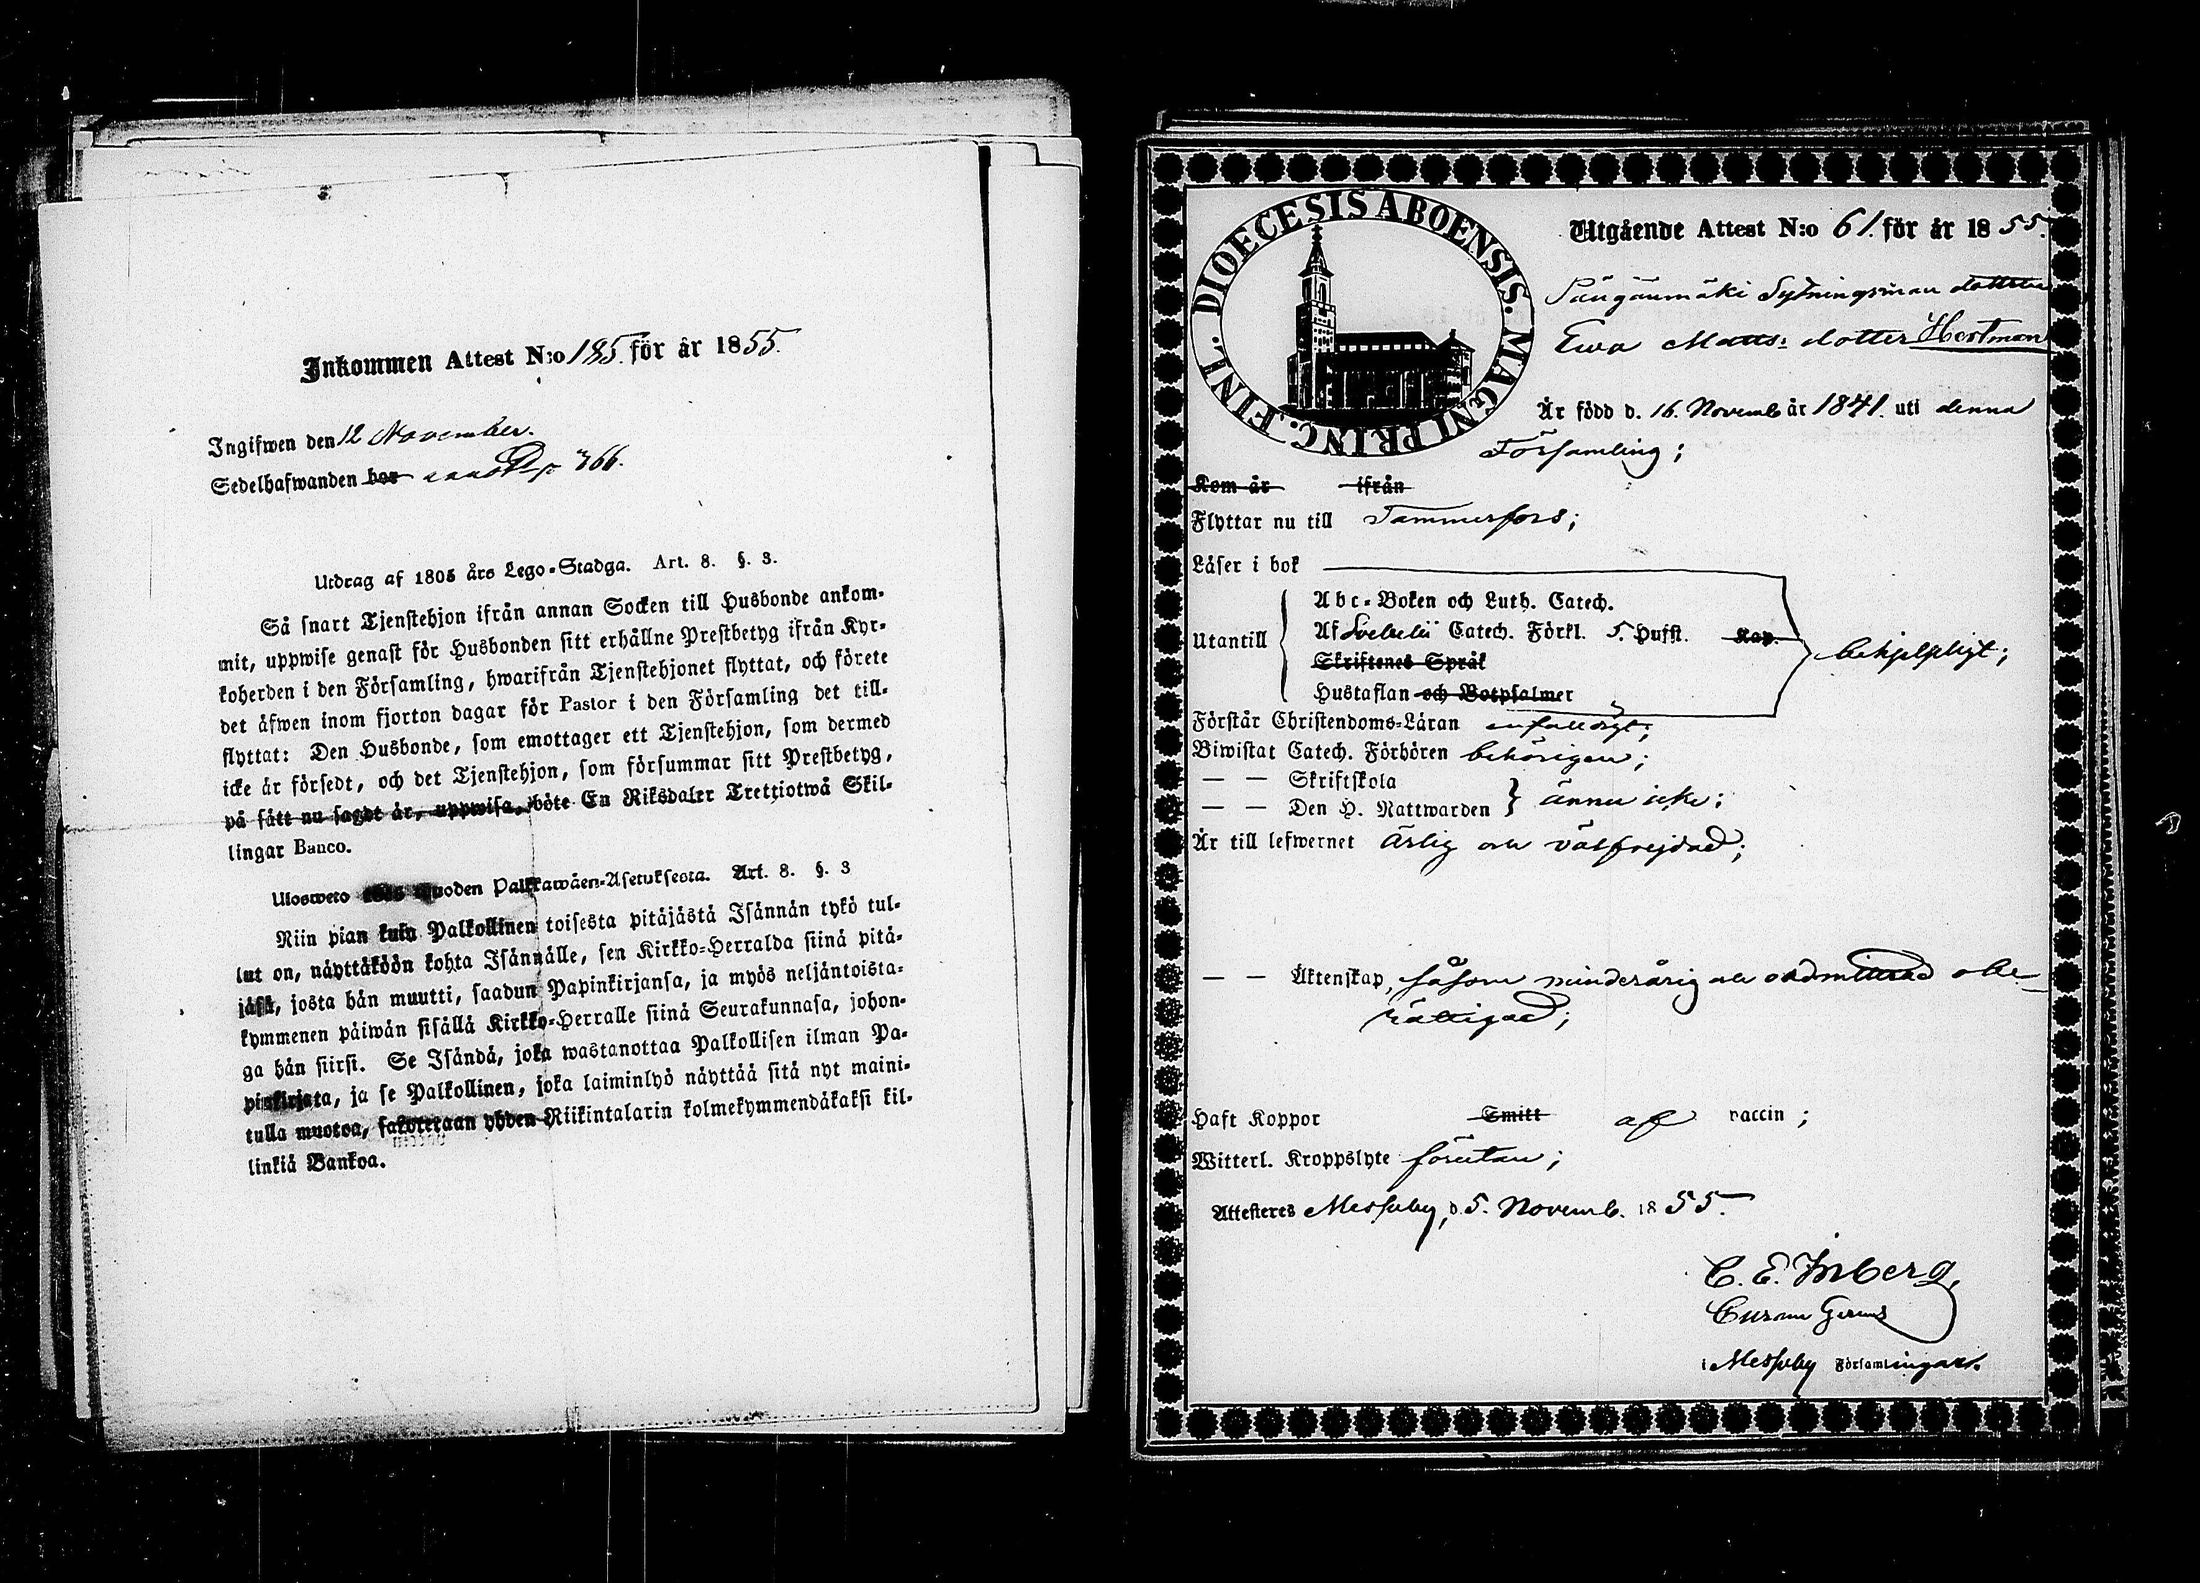 Inkommen Attest N:o 185. för år 1855.
Ingifwen den 12 November.
Sedelhafwanden bor 366.
Utdrag af 1805 års Lego-Stadga. Art. 8. §. 3.
Så snart Tjenstehjon ifrån annan Socken till Husbonde ankom-
mit, uppwise genast för Husbonden sitt erhållne Prestbetyg ifrån Kyr-
koherden i den Församling, hwarifrån Tjenstehjonet flyttat, och förete
det äfwen inom fjorton dagar för Pastor i den Församling det till-
flyttat: Den Husbonde, som emottager ett Tjenstehjon, som dermed
icke är försedt, och det Tjenstehjon, som försummar sitt Prestbetyg,
på sätt nu sagdt är, uppwisa, böte En Riksdaler Trettiotwå Skil-
lingar Banco.
Ulosweto wuoden Palkkawäen-Asetuksesta. Art. 8. §. 3
Niin pian kuin Palkollinen toisesta pitäjästä Isännän tykö tul-
lut on, näyttäköön kohta Isännälle, sen Kirkko-Herralda siinä pitä-
jäsä, josta hän muutti, saadun Papinkirjansa, ja myös neljäntoista-
kymmenen päiwän sisällä Kirkko-Herralle siinä Seurakunnasa, johon-
ga hän siirsi. Se Isändä, joka wastanottaa Palkollisen ilman Pa-
pinkirjata, ja se Palkollinen, joka laiminlyö näyttää sitä nyt maini-
tulla muotoa, sakotetaan yhden Riikintalarin kolmekymmendäkaksi kil-
linkiä Bankoa.
DIOECESIS ABOENSIS. MAGNI PRINC. FINL.
Utgående Attest N:o 61. för år 1855.
Sytningsman dotter
Ewa Matts: dotter Hertman
Är född d. 16. Novemb år 1841. uti denna
Församling;
Kom år ifrån
Flyttar nu till Tammerfors;
Läser i bok
Abc-Boken och Luth. Catech.
Utantill Af Svebelii Catech. Förkl. 5. Hufst. Kap. behjelpligt;
Skriftenes Språk
Hustaflan och Botpsalmer
Förstår Christendoms-Läran enfalldigt;
Biwistat Catech. Förhören behörigen;
— — Skriftskola
— — Den H. Nattwarden } ännu icke;
Är till lefwernet Ärlig och välfrejdad;
— — Äktenskap, såsom minderårig och oadmitterad obe-
rättigad;
Haft Koppor Smitt af vaccin;
Witterl. Kroppslyte förutan;
Attesteres Messuby, d. 5. Novemb. 1855.
C. E. Inberg,
Curam Gerens
i Messuby Församlingar.